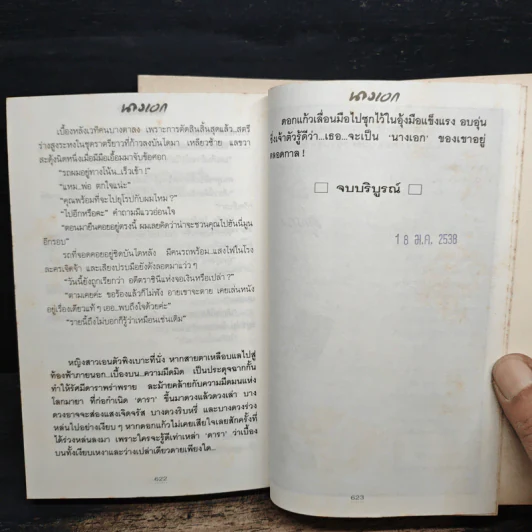 นางเอก
เบื้องหลังเวทีคนบางตาลง เพราะการตัดสินสิ้นสุดแล้ว..สตรี
ร่างสูงระหงในชุดราตรียาวก้าวลงบันไดมา เหลียวซ้าย แลขวา
สะดุ้งนิดหนึ่งเมื่อมีมือเอื้อมมาจับข้อศอก
"รถผมอยู่ทางโน้น..เร็วเข้า !"
"แหม..พ่อ ตกใจแน่ะ"
"คุณพร้อมที่จะไปยุโรปกับผมไหม ?"
"ไปอีกหรือคะ" คำถามมีแววอ่อนใจ
"ตอนมายืนคอยอยู่ตรงนี้ ผมเลยคิดว่าน่าจะชวนคุณไปฮันนีมูน
อีกรอบ"
รถที่จอดคอยอยู่ชิดบันไดหลัง มีคนรถพร้อม..แสงไฟในโรง
ละครเจิดจ้า และเสียงปรบมือยังดังลอดมาแว่ว ๆ
"วันนี้ยังถูกเรียกว่า อดีตราชินีแห่งจอเงินหรือเปล่า ?"
"ตามเคยค่ะ ขอร้องแล้วก็ไม่ฟัง อายเขาจะตาย เคยเล่นหนัง
อยู่เรื่องเดียวแท้ ๆ เธอ..พบถึงใจด้วยค่ะ"
"รายนี้ถึงไม่บอกก็รู้ว่าเหมือนเช่นเดิม"
หญิงสาวเอนตัวพิงเบาะที่นั่ง หากสายตาเหลือบแลไปสู่
ท้องฟ้าภายนอก..เบื้องบน..ความมืดมิด เป็นประดุจฉากกั้น
ทำให้รัศมีดาราพร่าพราย ละม้ายคล้ายกับความมืดมนแห่ง
โลกมายา ที่ก่อกำเนิด 'ดารา' ขึ้นมาดวงแล้วดวงเล่า บาง
ดวงอาจจะส่องแสงเจิดจรัส บางดวงริบหรี่ และบางดวงร่วง
หล่นไปอย่างเงียบ ๆ หากดอกแก้วไม่เคยเสียใจเลยสักครั้งที่
ได้ร่วงหล่นลงมา เพราะใครจะรู้ดีเท่าเหล่า 'ดารา' ว่าเบื้อง
บนทั้งเงียบเหงาและว่างเปล่าเดียวดายเพียงใด..
622
นางเอก
ดอกแก้วเลื่อนมือไปซุกไว้ในอุ้งมือแข็งแรง อบอุ่น
ซึ่งเจ้าตัวรู้ดีว่า...เธอ...จะเป็น 'นางเอก' ของเขาอยู่
ตลอดกาล !
□ จบบริบูรณ์ □
18 มี.ค. 2538
623